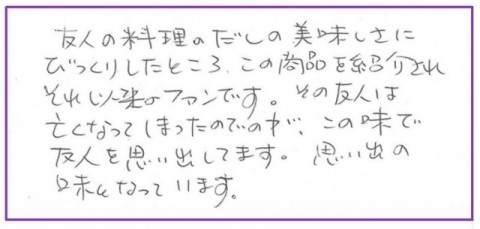 友人の料理のだしの美味しさに
びっくりしたところ、この商品を紹介され
それ以来のファンです。その友人は
亡くなってしまったのでのが、この味で
友人を思い出してます。思い出の
味となっています。